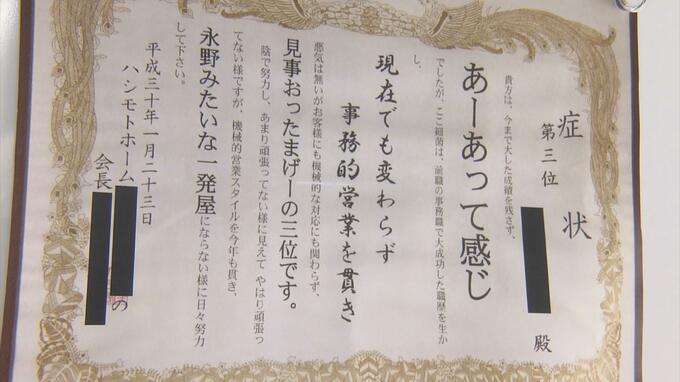 症状
第三位
殿
貴方は、今まで大した成績を残さず、
あーあって感じ
でしたが、ここ細菌は、前職の事務職で大成功した職歴を生か
し、
現在でも変わらず
事務的営業を貫き
悪気は無いがお客様にも機械的な対応にも関わらず、
見事おったまげーの三位です。
陰で努力し、あまり頑張ってない様に見えて やはり頑張っ
てない様ですが、機械的営業スタイルを今年も貫き、
永野みたいな一発屋にならない様に日々努力
して下さい。
平成三十年一月二十三日
ハシモトホーム
の
会長